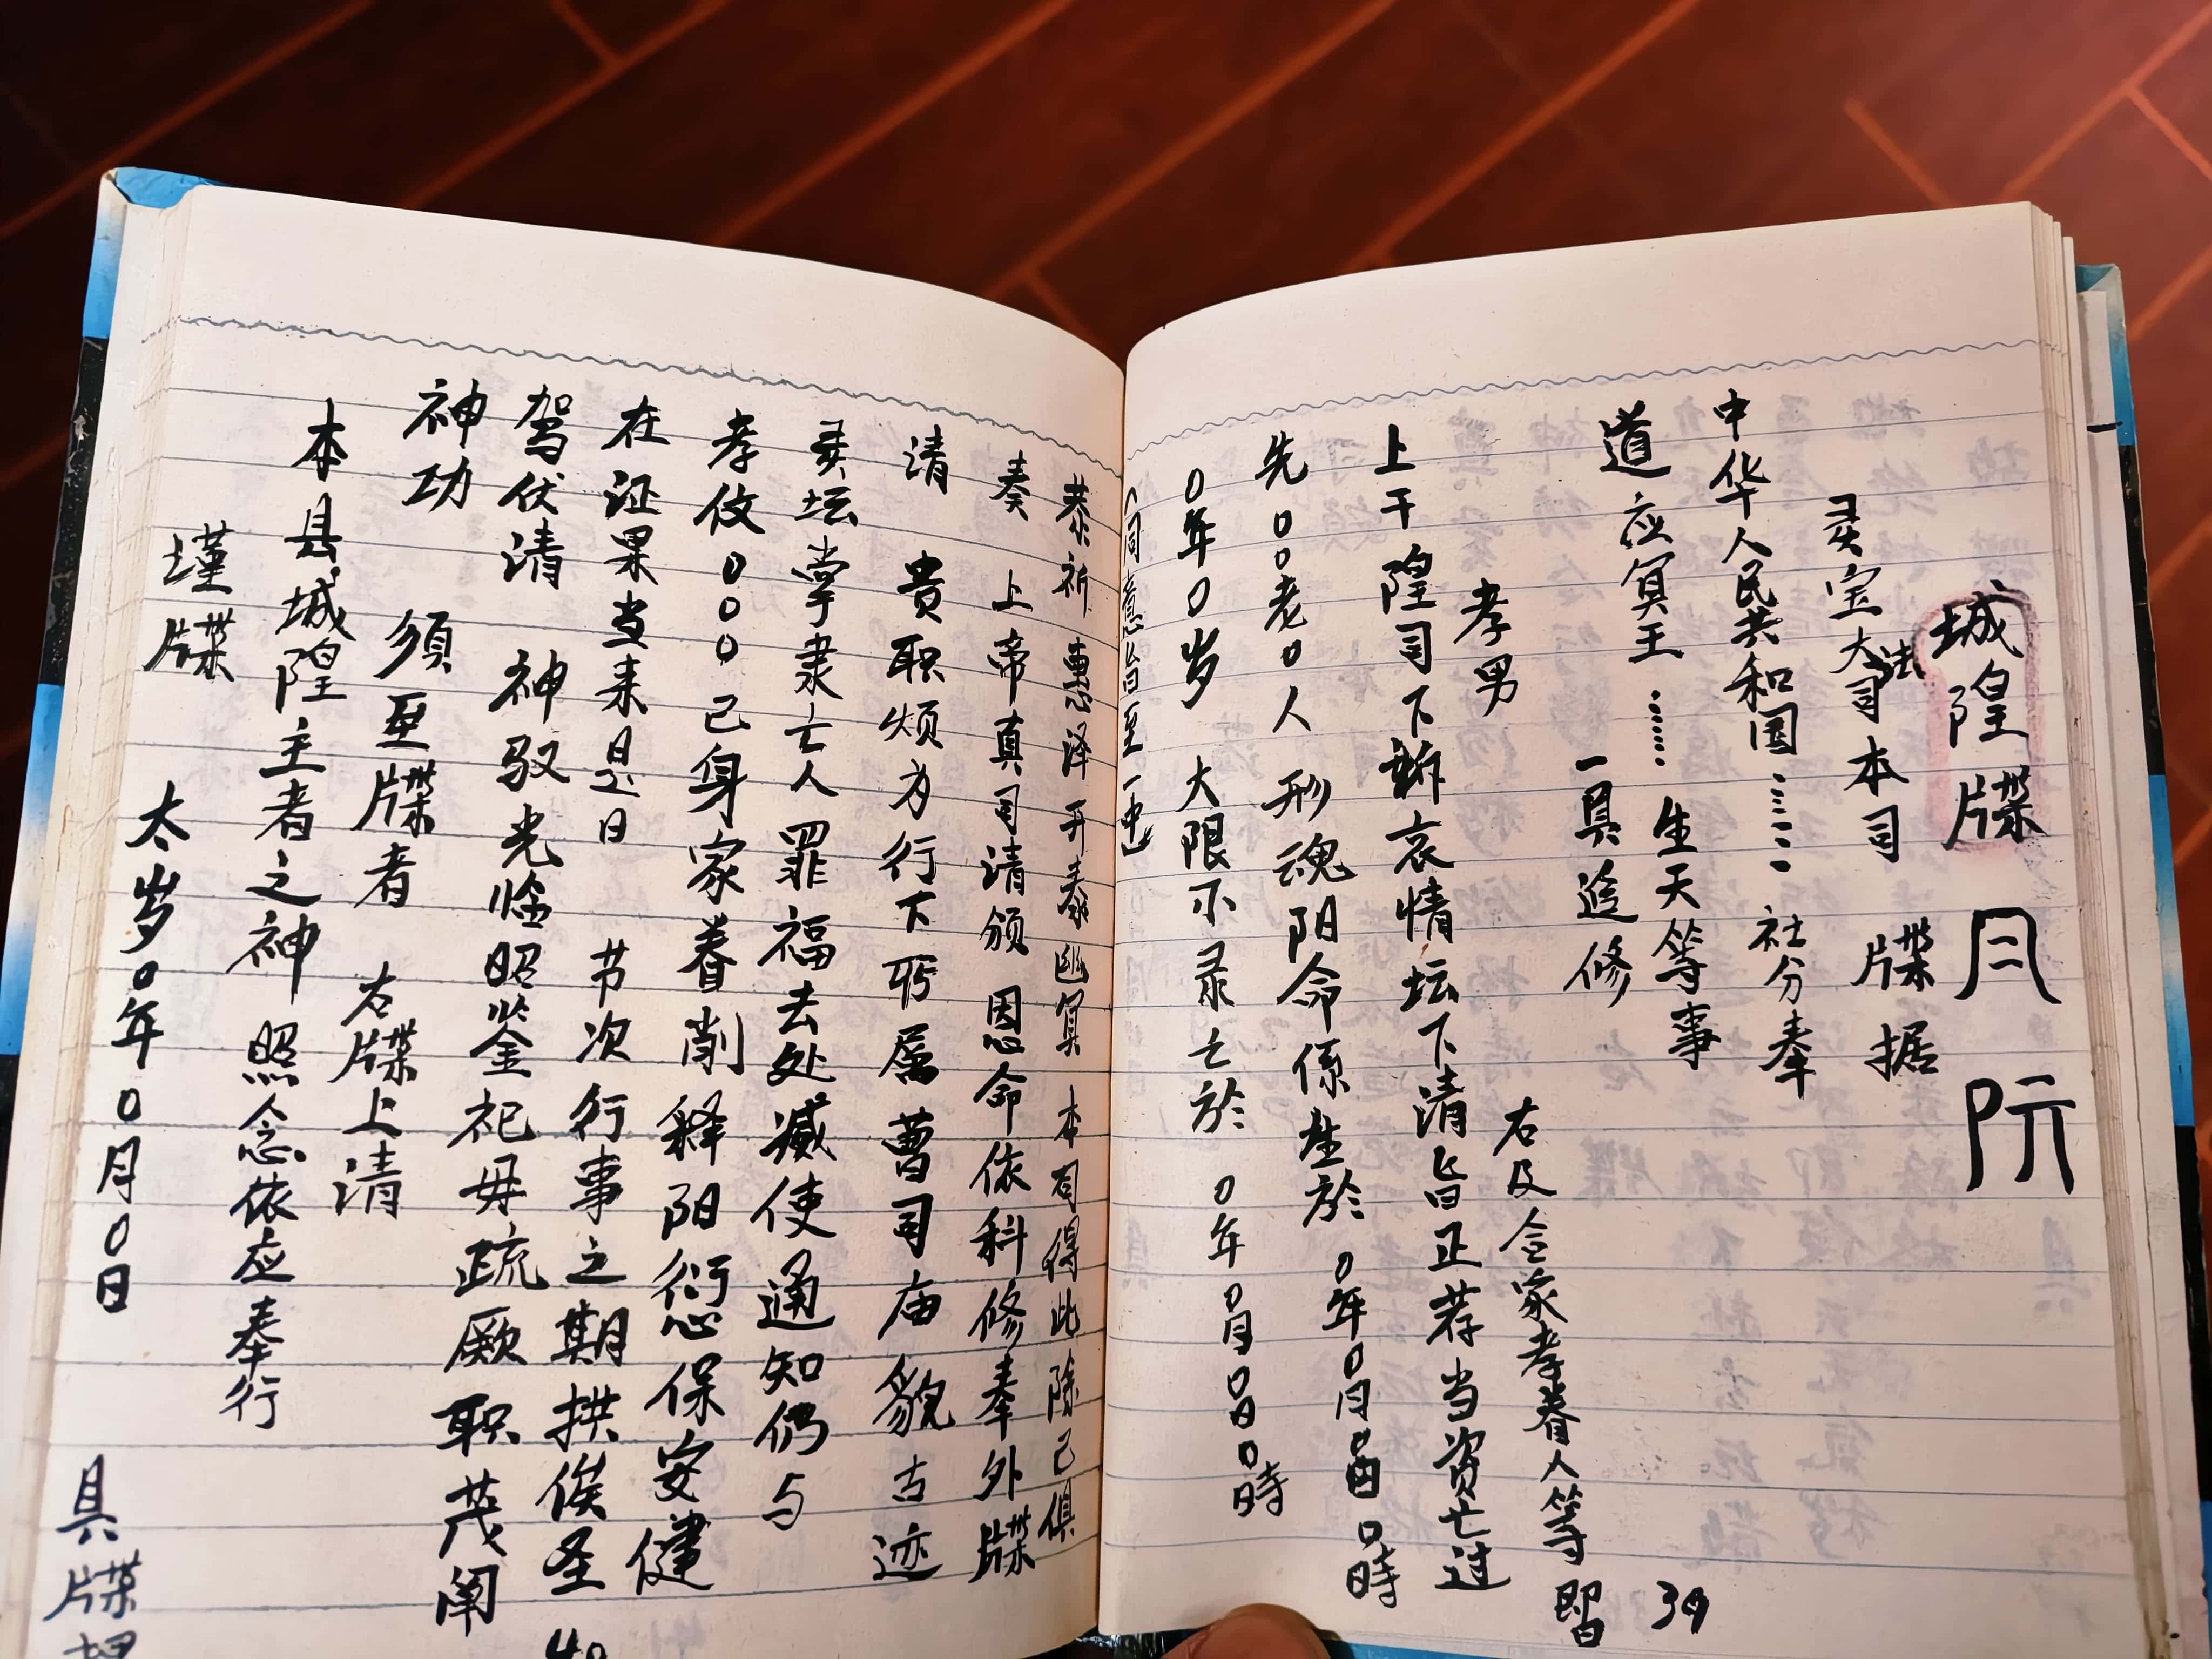 城隍牒
灵宝大法司 本司 牒 据
中华人民共和国……一一 社分奉
道 应冥王…… 生天等事
一具追修
孝男 右及合家孝眷人等 即
上干 隍司下 哀情 坛下清旨正荐当资亡过
先00老0人 形魂 阳命係生於 0年0月0日 0時
0年0岁 大限不录亡於 0年0月0日0時
恭祈 惠泽 开泰幽冥 本司得此除己俱
奏 上帝真司请颁 恩命依科修奉外牒
请 贵职烦为行下所属曹司庙貌古迹
灵坛掌隶亡人罪福去处 使通知仍与
孝 000己身家眷削释阳衍保安健
在证果当来是日 节次行事之期拱俟圣
驾伏请 神驭光临昭鉴祀毋疏厥职茂阐
神功 须至牒者 右牒上请
本县城隍主者之神 照念依应奉行
谨牒 太岁0年0月0日 具牒
39